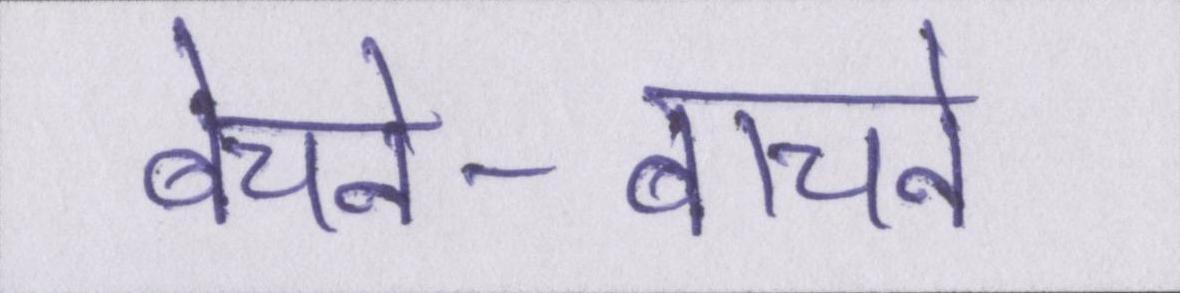 बेचने-बाचने